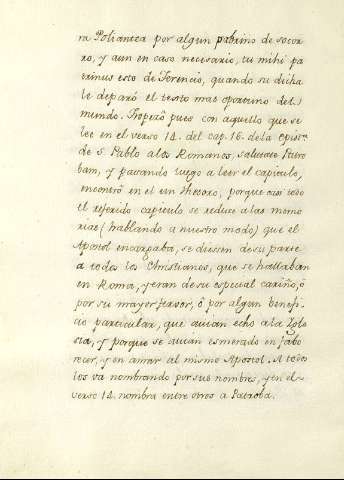 ra Poliantea por algun patrino de socor-
ro, y aun en caso necesario, tu mihi pa
trinus esto de Terencio, quando su dicha
le deparó el texto mas oportuno del
mundo. Tropezò pues con aquello que se
lee en el verso 14. del cap. 16. de la epist.
de S. Pablo a los Romanos, salutate Patro
bam, y passando luego a leer el capitulo,
encontrò en el un thesoro, porque casi todo
el referido capitulo se reduce a las memo
rias (hablando a nuestro modo) que el
Apostol encargaba, se diessen de su parte
a todos los Christianos, que se hallaban
en Roma, y eran de su especial cariño, ò
por su mayor fervor, ò por algun benefi
cio particular, que avian echo a la Igle
sia, y porque se avian esmerado en fabo
recer, y en amar al mismo Apostol. A todos
los va nombrando por sus nombres, y en el
verso 14. nombra entre otros a Patroba.